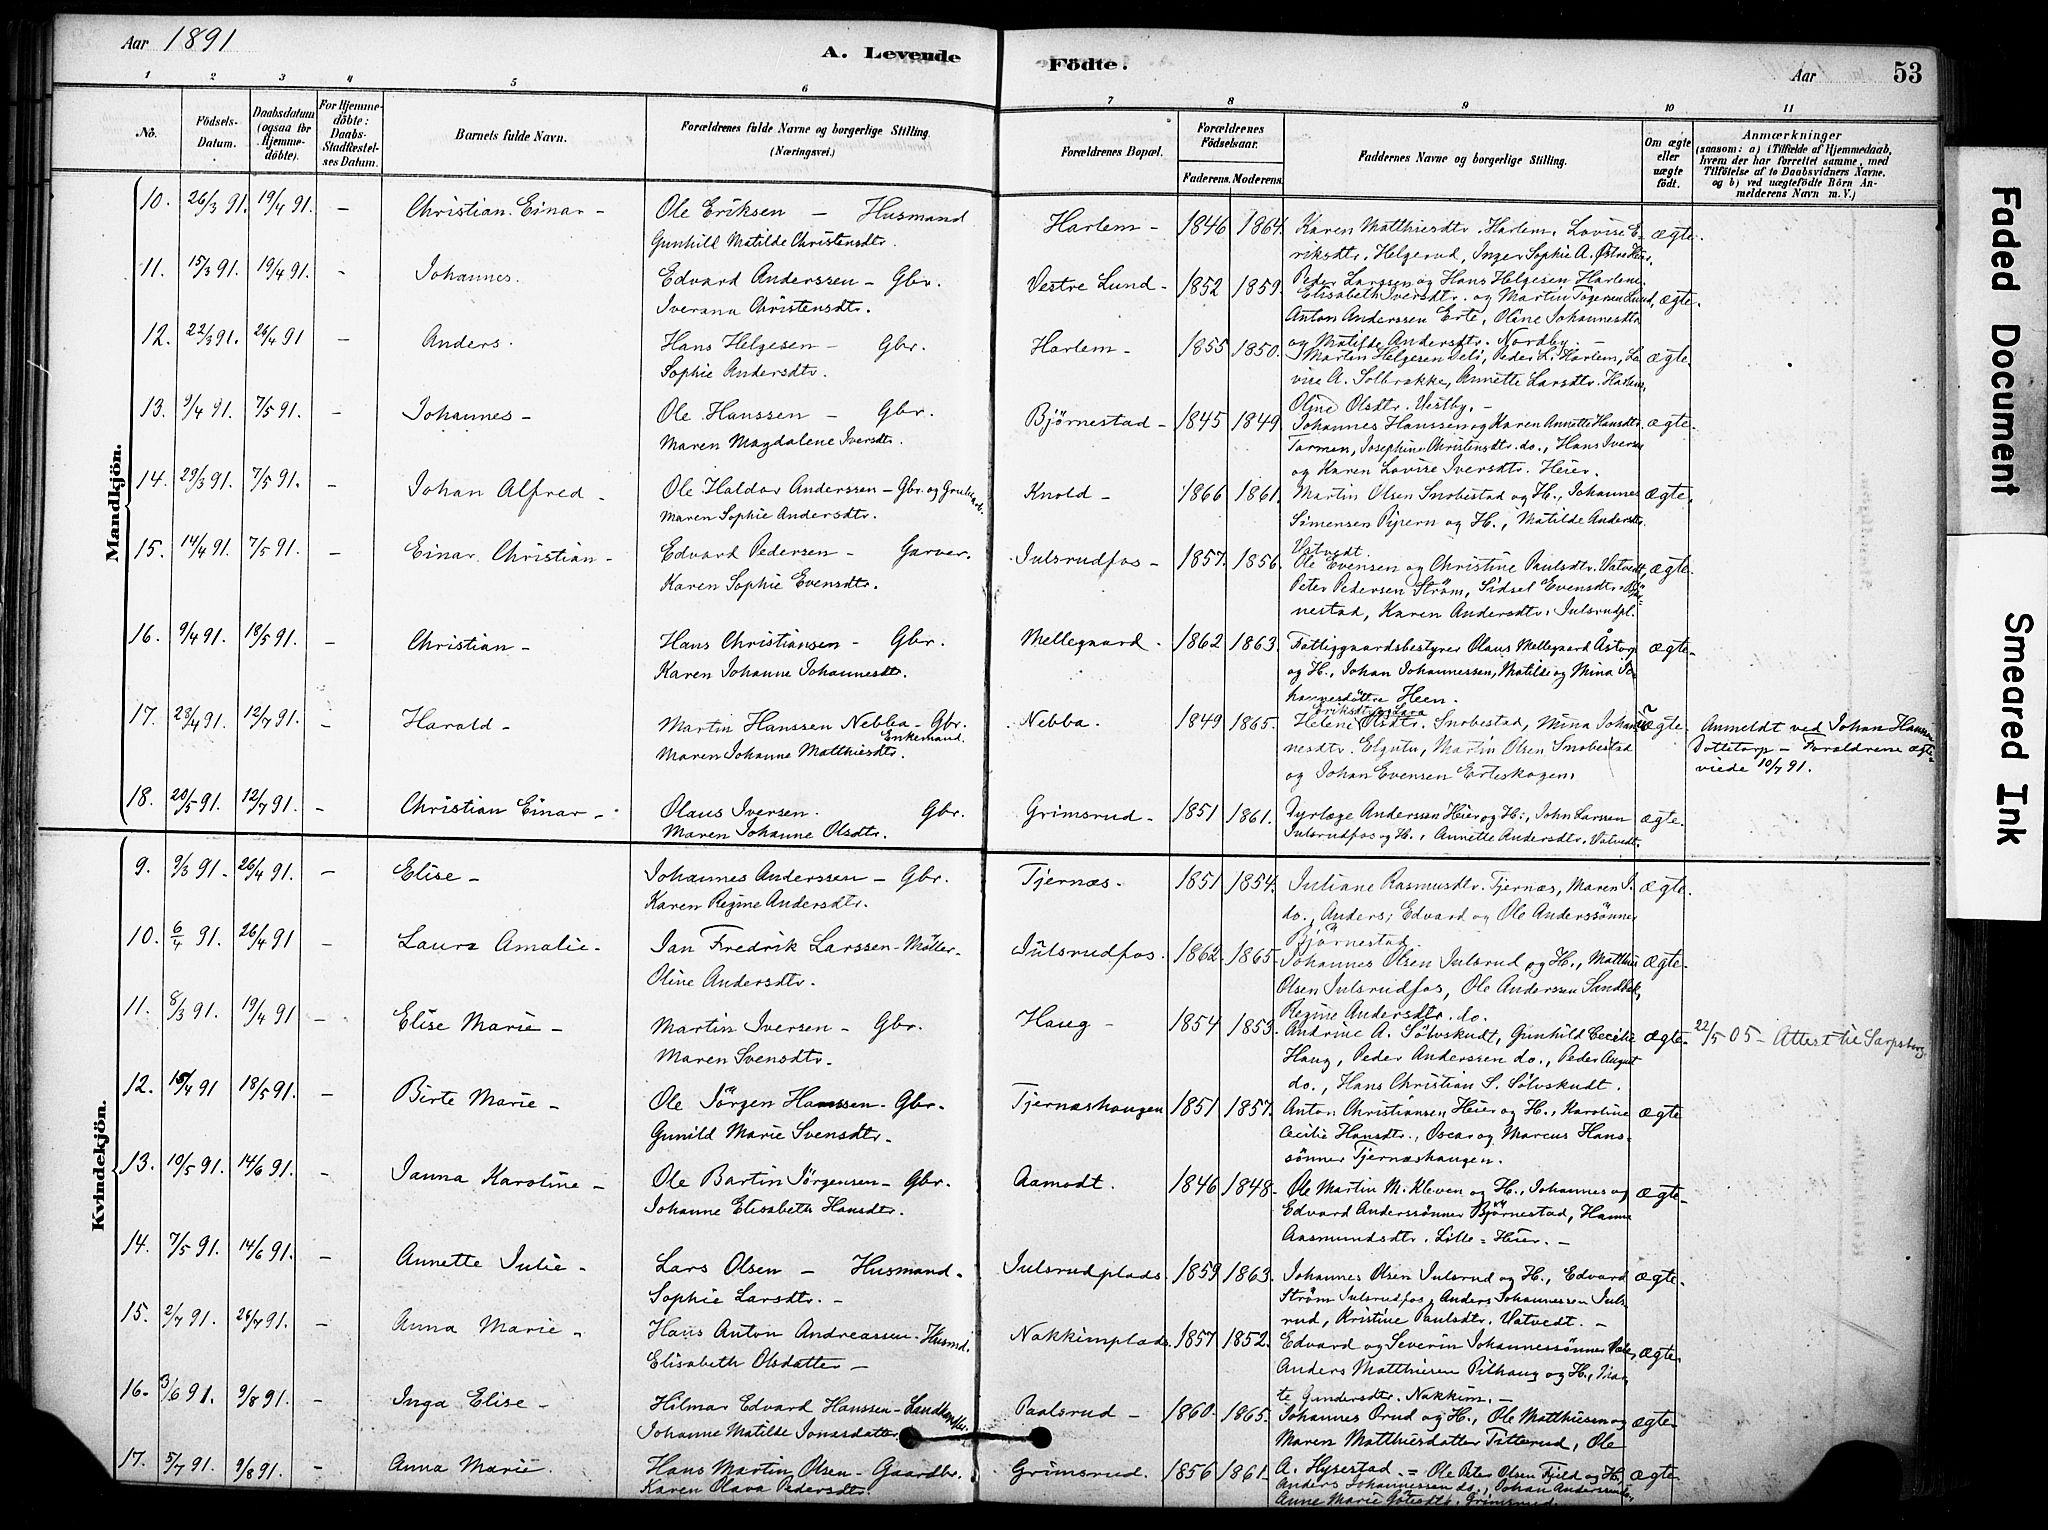 Aar 1891
A. Levende Födte.
Aar
53
1 2 3 4 5 6 7 8 9 10 11
No.
Födsels-Datum.
Daabsdatum (ogsaa for Hjemmedöbte).
For Hjemmedöbte: Daabs-Stadfæstelses Datum.
Barnets fulde Navn.
Forældrenes fulde Navne og borgerlige Stilling. (Næringsvei.)
Forældrenes Bopæl.
Forældrenes Födselsaar.
Faderens. Moderens.
Faddernes Navne og borgerlige Stilling.
Om ægte eller uægte födt.
Anmærkninger
(saasom: a) i Tilfælde af Hjemmedaab,
hvem der har forrettet samme, med
Tilföielse af to Daabsvidners Navne,
og b) ved uægtefödte Börn An-
melderens Navn m. V.)
Mandkjön.
10. 26/3 91. 19/4 91. – Christian Einar – Ole Eriksen – Husmand Harlem – 1846 1864. Karen Matthiesdtr. Harlem, Lovise E- ægte.
Gunhild Matilde Christensdtr. riksdtr. Helgerud, Inger Sophie A.
11. 15/3 91. 19/4 91. – Johannes. Edvard Anderssen – Gbr. Vestre Lund – 1852 1859. Peder Larssen og Hans Helgesen Harlem. ægte.
Iverana Christensdtr. Elisabeth Iversdtr. og Martin Lund,
Anton Anderssen Erte, Oline Johannesdtr.
og Matilde Andersdtr. Nordby –
12. 22/3 91. 26/4 91 – Anders. Hans Helgesen – Gbr. Harlem – 1855 1850. Martin Helgesen, Peder L. Harlem, Lo- ægte
Sophie Andersdtr. vise A. Solbrække, Annette Larsdtr. Harlem,
Oline Olsdtr. Vestby. –
13. 9/4 91. 7/5 91. – Johannes – Ole Hanssen – Gbr. Bjørnestad – 1845 1849 Johannes Hanssen og Karen Annette Hansdtr. ægte.
Maren Magdalene Iversdtr. Torman, Josephine Christensdtr. do., Hans Iversen
og Karen Lovise Iversdtr. Heier.
14. 29/3 91. 7/5 91. – Johan Alfred – Ole Haldor Anderssen – Gbr. og Knold – 1866 1861. Martin Olsen Snobestad og H., Johannes ægte.
Maren Sophie Andersdtr. Simensen Pipern og H., Matilde Andersdtr.
Vatvedt.
15. 14/4 91. 7/5 91. – Einar Christian – Edvard Pedersen – Garver. Julsrudfos – 1857. 1856. Ole Evensen og Christine Paulsdtr. Vatvedt, ægte.
Karen Sophie Evensdtr. Peter Pedersen Ström, Sidsel Evensdtr. Bjør-
nestad, Karen Andersdtr. Julsrudpl.
16. 9/4 91. 18/5 91. – Christian – Hans Christiansen – Gbr. Mellegaard. 1862 1863. Fattiggaardsbestyrer Olaus Mellegaard Åstorp ægte –
Karen Johanne Johannesdtr. og H., Johan Johannessen, Matilde og Mina Jo-
hannesdöttre Heen.
17. 28/4 91. 12/7 91. – Harald – Martin Hanssen Nebba – Gbr. Nebba. 1849 1865. Helene Olsdtr. Snobestad, Mina Johan- ægte. Anmeldt ved Johan Hansen
Enkemand. Eriksdtr.
Maren Johanne Matthiesdtr. nesdtr. Elgutu, Martin Olsen Snobestad Dottetorp – Forældrene ægte-
og Johan Evensen Erteskogen. viede 10/7 91.
18. 20/5 91. 12/7 91. – Christian Einar – Olaus Iversen. Gbr. Grimsrud. 1851 1861. Anderssen Heier og H., John Larssen ægte.
Maren Johanne Olsdtr. Julsrudfos og H., Annette Andersdtr. Vatvedt.
Kvindekjön.
9. 9/3 91. 26/4 91. – Elise – Johannes Anderssen – Gbr. Tjernæs. 1851 1854. Juliane Rasmusdtr. Tjernæs, Maren J. ægte.
Karen Regine Andersdtr. do., Anders, Edvard og Ole Anderssönner
Bjørnestad.
10. 6/4 91. 26/4 91 – Laura Amalie – Jan Fredrik Larssen – Möller. Julsrudfos. 1862. 1865. Johannes Olsen Julsrud og H., Matthis ægte.
Oline Andersdtr. Olsen Julsrudfos, Ole Anderssen Sandbæk,
Regine Andersdtr. do.
11. 8/3 91. 19/4 91 – Elise Marie – Martin Iversen – Gbr. Haug – 1854 1853. Andrine A. Sölvskudt, Gunhild Cecilie ægte. 22/5 05 – Attest til Sarpsborg.
Maren Svensdtr. Haug, Peder Anderssen do., Peder August
do., Hans Christian S. Sölvskudt.
12. 15/4 91 18/5 91. – Birte Marie – Ole Jörgen Hanssen – Gbr. Tjernæshaugen 1851 1857. Anton Christiansen Heier og H., Karoline ægte
Gunild Marie Svensdtr. Cecilie Hansdtr., Oscar og Marcus Hans-
sönner Tjernæshaugen.
13. 10/5 91. 14/6 91. – Janna Karoline – Ole Bartin Jörgensen – Gbr. Aamodt. 1846 1848. Ole Martin M. Kleven og H., Johannes og ægte –
Johanne Elisabeth Hansdtr. Edvard Anderssönner Bjørnestad, Hanna
Aasmundsdtr. Lille-Heier. –
14. 7/5 91. 14/6 91. – Annette Julie – Lars Olsen – Husmand. Julsrudplads. 1859 1863. Johannes Olsen Julsrud og H., Edvard ægte.
Sophie Larsdtr. – Ström Julsrudfos, Anders Johannessen Juls-
rud, Kristine Paulsdtr. Vatvedt. –
15. 2/7 91. 26/7 91. – Anna Marie – Hans Anton Andreassen – Husmd. Nakkimplads. 1857 1852. Edvard og Severin Johannessönner ægte.
Elisabeth Olsdatter – Anders Matthiesen Pilhaug og H.,
Gundersdtr. Nakkim. –
16. 3/6 91. 9/8 91. – Inga Elise – Hilmar Edvard Hanssen – Landhandler. Paalsrud – 1860. 1865. Johannes Orud og H., Ole Matthiesen og ægte
Johanne Matilde Jonasdatter Maren Matthiesdatter Titterud, Ole
A. Hysestad. =
17. 5/7 91. 9/8 91. – Anna Marie. Hans Martin Olsen – Gaardbr. Grimsrud. 1856 1861. Ole Peter Olsen Fjeld og H., ægte
Karen Olava Pedersdtr. Anders Johannessen do., Johan Anderssen do.,
Anne Marie Grimsrud.
Faded Document
Smeared Ink